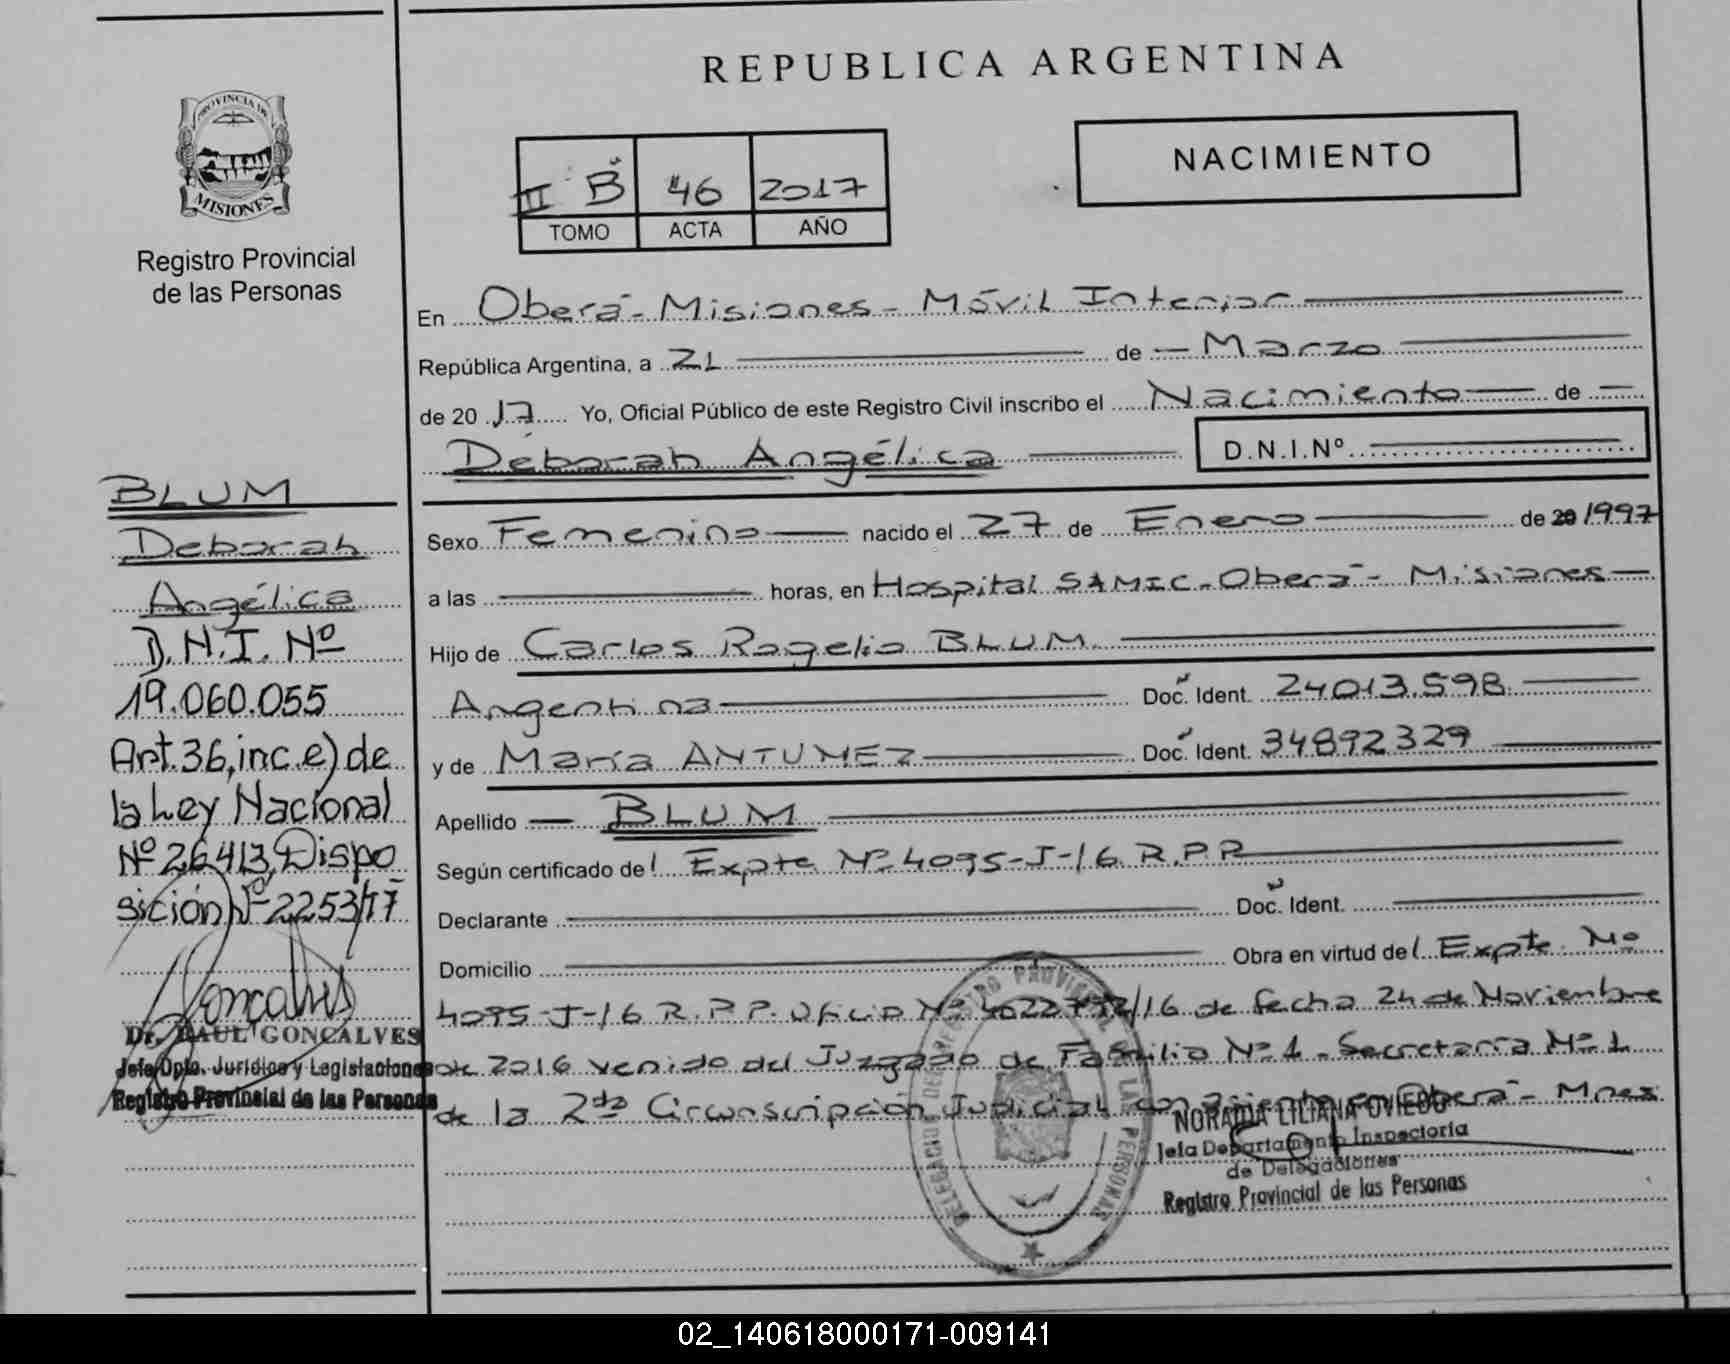 REPUBLICA ARGENTINA
PROVINCIA DE
MISIONES
Registro Provincial
de las Personas
II B 46 2017
TOMO ACTA AÑO
NACIMIENTO
En Oberá - Misiones - Móvil Interior
República Argentina, a 21 de Marzo
de 20 17 Yo, Oficial Público de este Registro Civil inscribo el Nacimiento de
Déborah Angélica D.N.I.Nº
Sexo Femenino nacido el 27 de Enero de 20 1997
a las horas, en Hospital SAMIC - Oberá - Misiones
Hijo de Carlos Rogelio BLUM
Argentina Doc. Ident. 24013.598
y de María ANTUNEZ Doc. Ident. 34892329
Apellido BLUM
Según certificado del Expte Nº 4095-J-16 R.P.P
Declarante Doc. Ident.
Domicilio Obra en virtud del Expte. Nº
4095-J-16 R.P.P. Oficio Nº /16 de fecha 24 de Noviembre
de 2016 venido del Juzgado de Familia Nº 1 - Secretaría Nº 1
de la 2da Circunscripción Judicial con asiento en Oberá - Mnes
BLUM
Deborah
Angélica
D.N.I. Nº
19.060.055
Art.36,inc.e) de
la Ley Nacional
Nº 26.413, Dispo
sición Nº 2253/17
Dr. RAUL GONCALVES
Jefe Dpto. Jurídico y Legislaciones
Registro Provincial de las Personas
NORA LILIANA OVIEDO
Jefa Departamento Inspectoría
de Delegaciones
Registro Provincial de las Personas
02_140618000171-009141